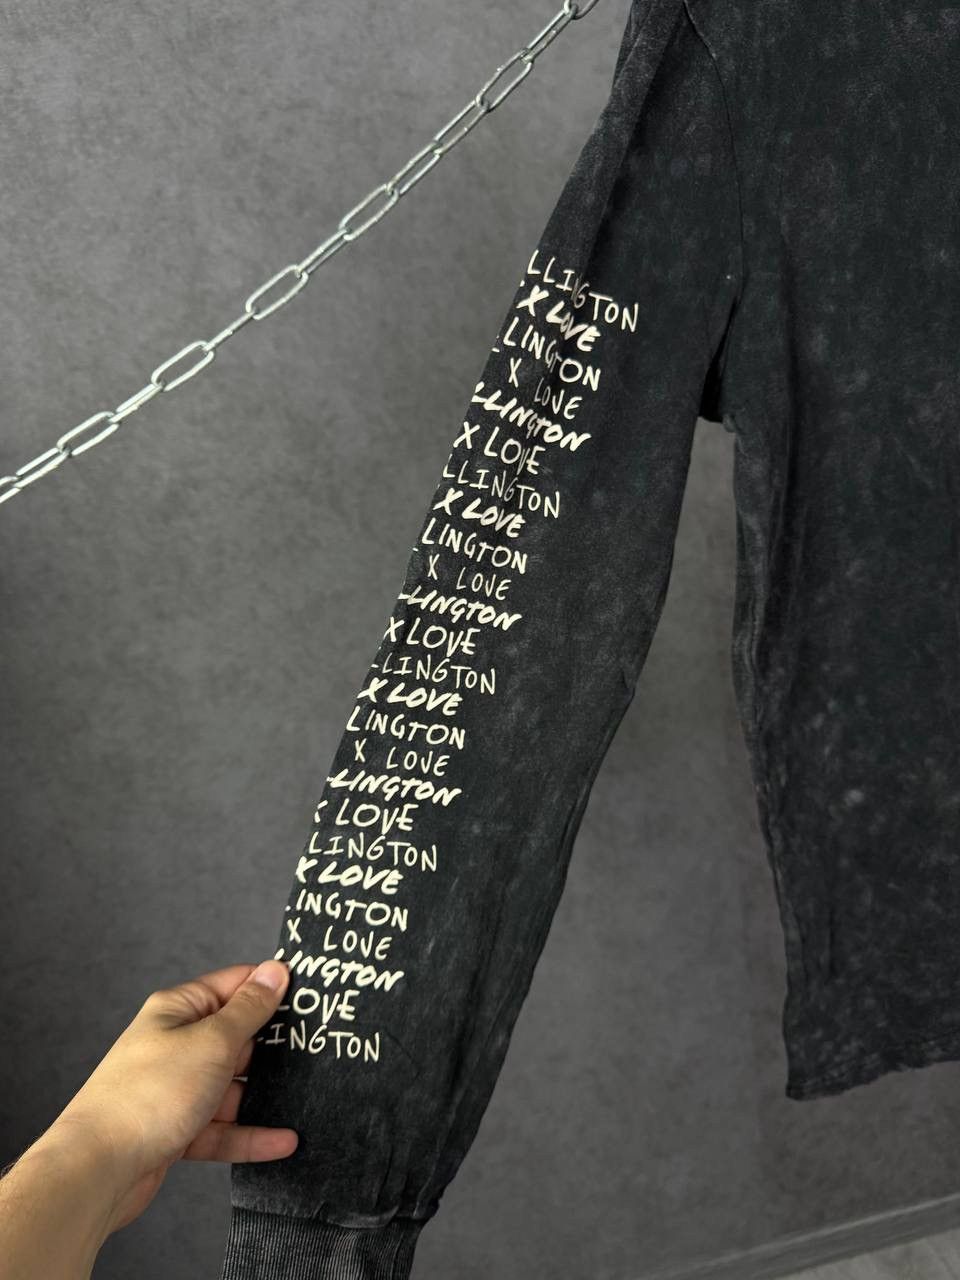 LLINGTON
X LOVE
LLINGTON
X LOVE
LLINGTON
X LOVE
LLINGTON
X LOVE
LINGTON
X LOVE
LLINGTON
X LOVE
LLINGTON
X LOVE
LINGTON
X LOVE
LLINGTON
X LOVE
LINGTON
X LOVE
INGTON
X LOVE
LINGTON
LOVE
INGTON